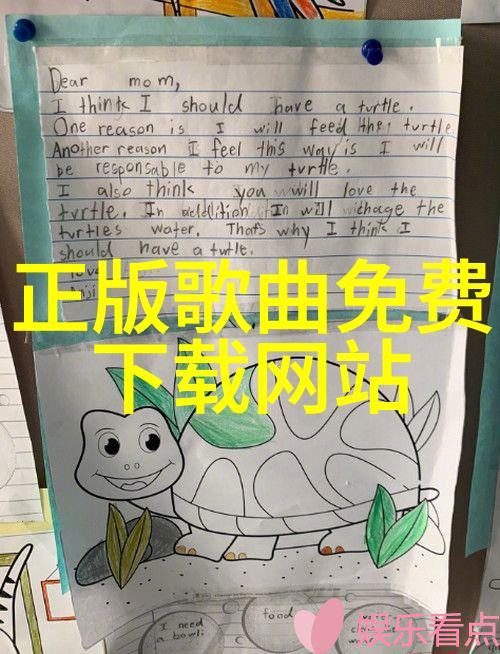 Dear mom,
I think I should have a turtle.
One reason is I will feed the turtle
Another reason I feel this way is I will
be responsable to my turtle.
I also think you will love the
turtle. In addition I will chage the
turtles water. That's why I think I
should have a turtle.
love
正版歌曲免费
下载网站
I need
a bowl
food
娱乐看点